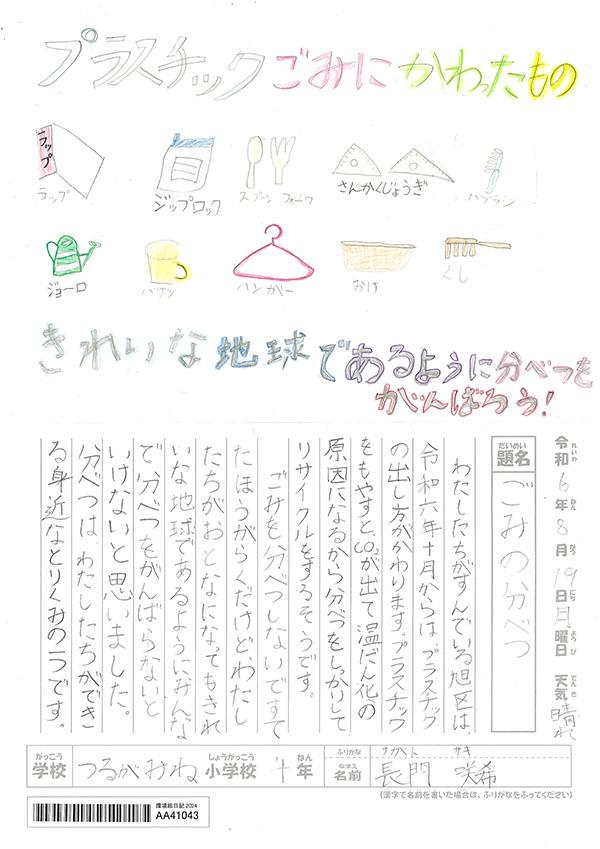 プラスチックごみにかわったもの
ラップ
ラップ
ジップロック
スプーン フォーク
さんかくじょうぎ
ハブラシ
ジョーロ
バケツ
ハンガー
おけ
くし
きれいな地球であるように分べつを
がんばろう!
令和6年8月19日月曜日 天気 晴れ
れいわ ねん がつ にち よう び てんき
だいめい
題名
ごみの分べつ
わたしたちがすんでいる旭区は、
令和六年十月からは、プラスチック
の出し方がかわります。プラスチック
をもやすと、CO₂が出て温だん化の
原因になるから分べつをしっかりして
リサイクルをするそうです。
ごみを分べつしないですて
たほうがらくだけどわたし
たちがおとなになってもきれ
いな地球であるようにみんな
で分べつをがんばらないと
いけないと思いました。
分べつは、わたしたちができ
る身近なとりくみの一つです。
がっこう しょうがっこう ねん
学校 つるがみね 小学校 4年
ふりがな ナガト サキ
なまえ
名前 長門 咲希
(漢字で名前を書いた場合は、ふりがなをふってください)
環境絵日記2024
AA41043